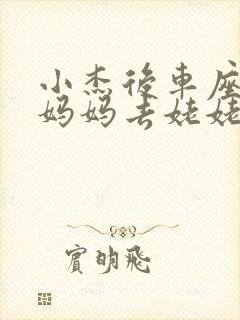 小杰後車座
妈妈去姥姥
賓明飛